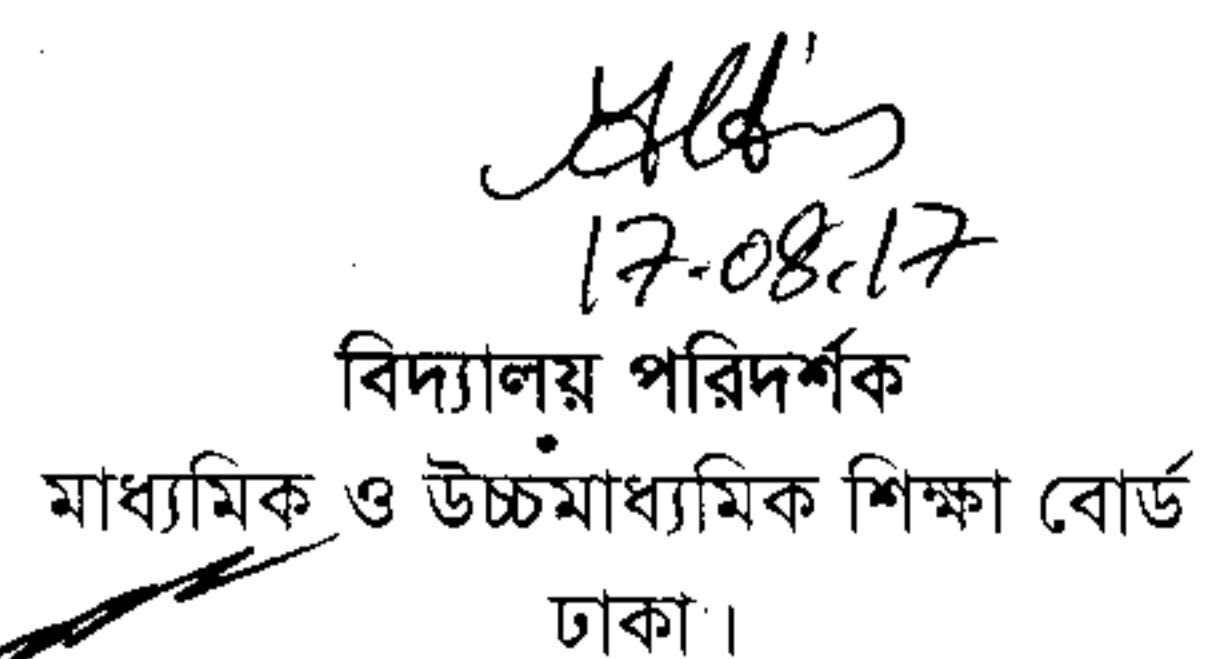 17-08-17
বিদ্যালয় পরিদর্শক
মাধ্যমিক ও উচ্চমাধ্যমিক শিক্ষা বোর্ড
ঢাকা।